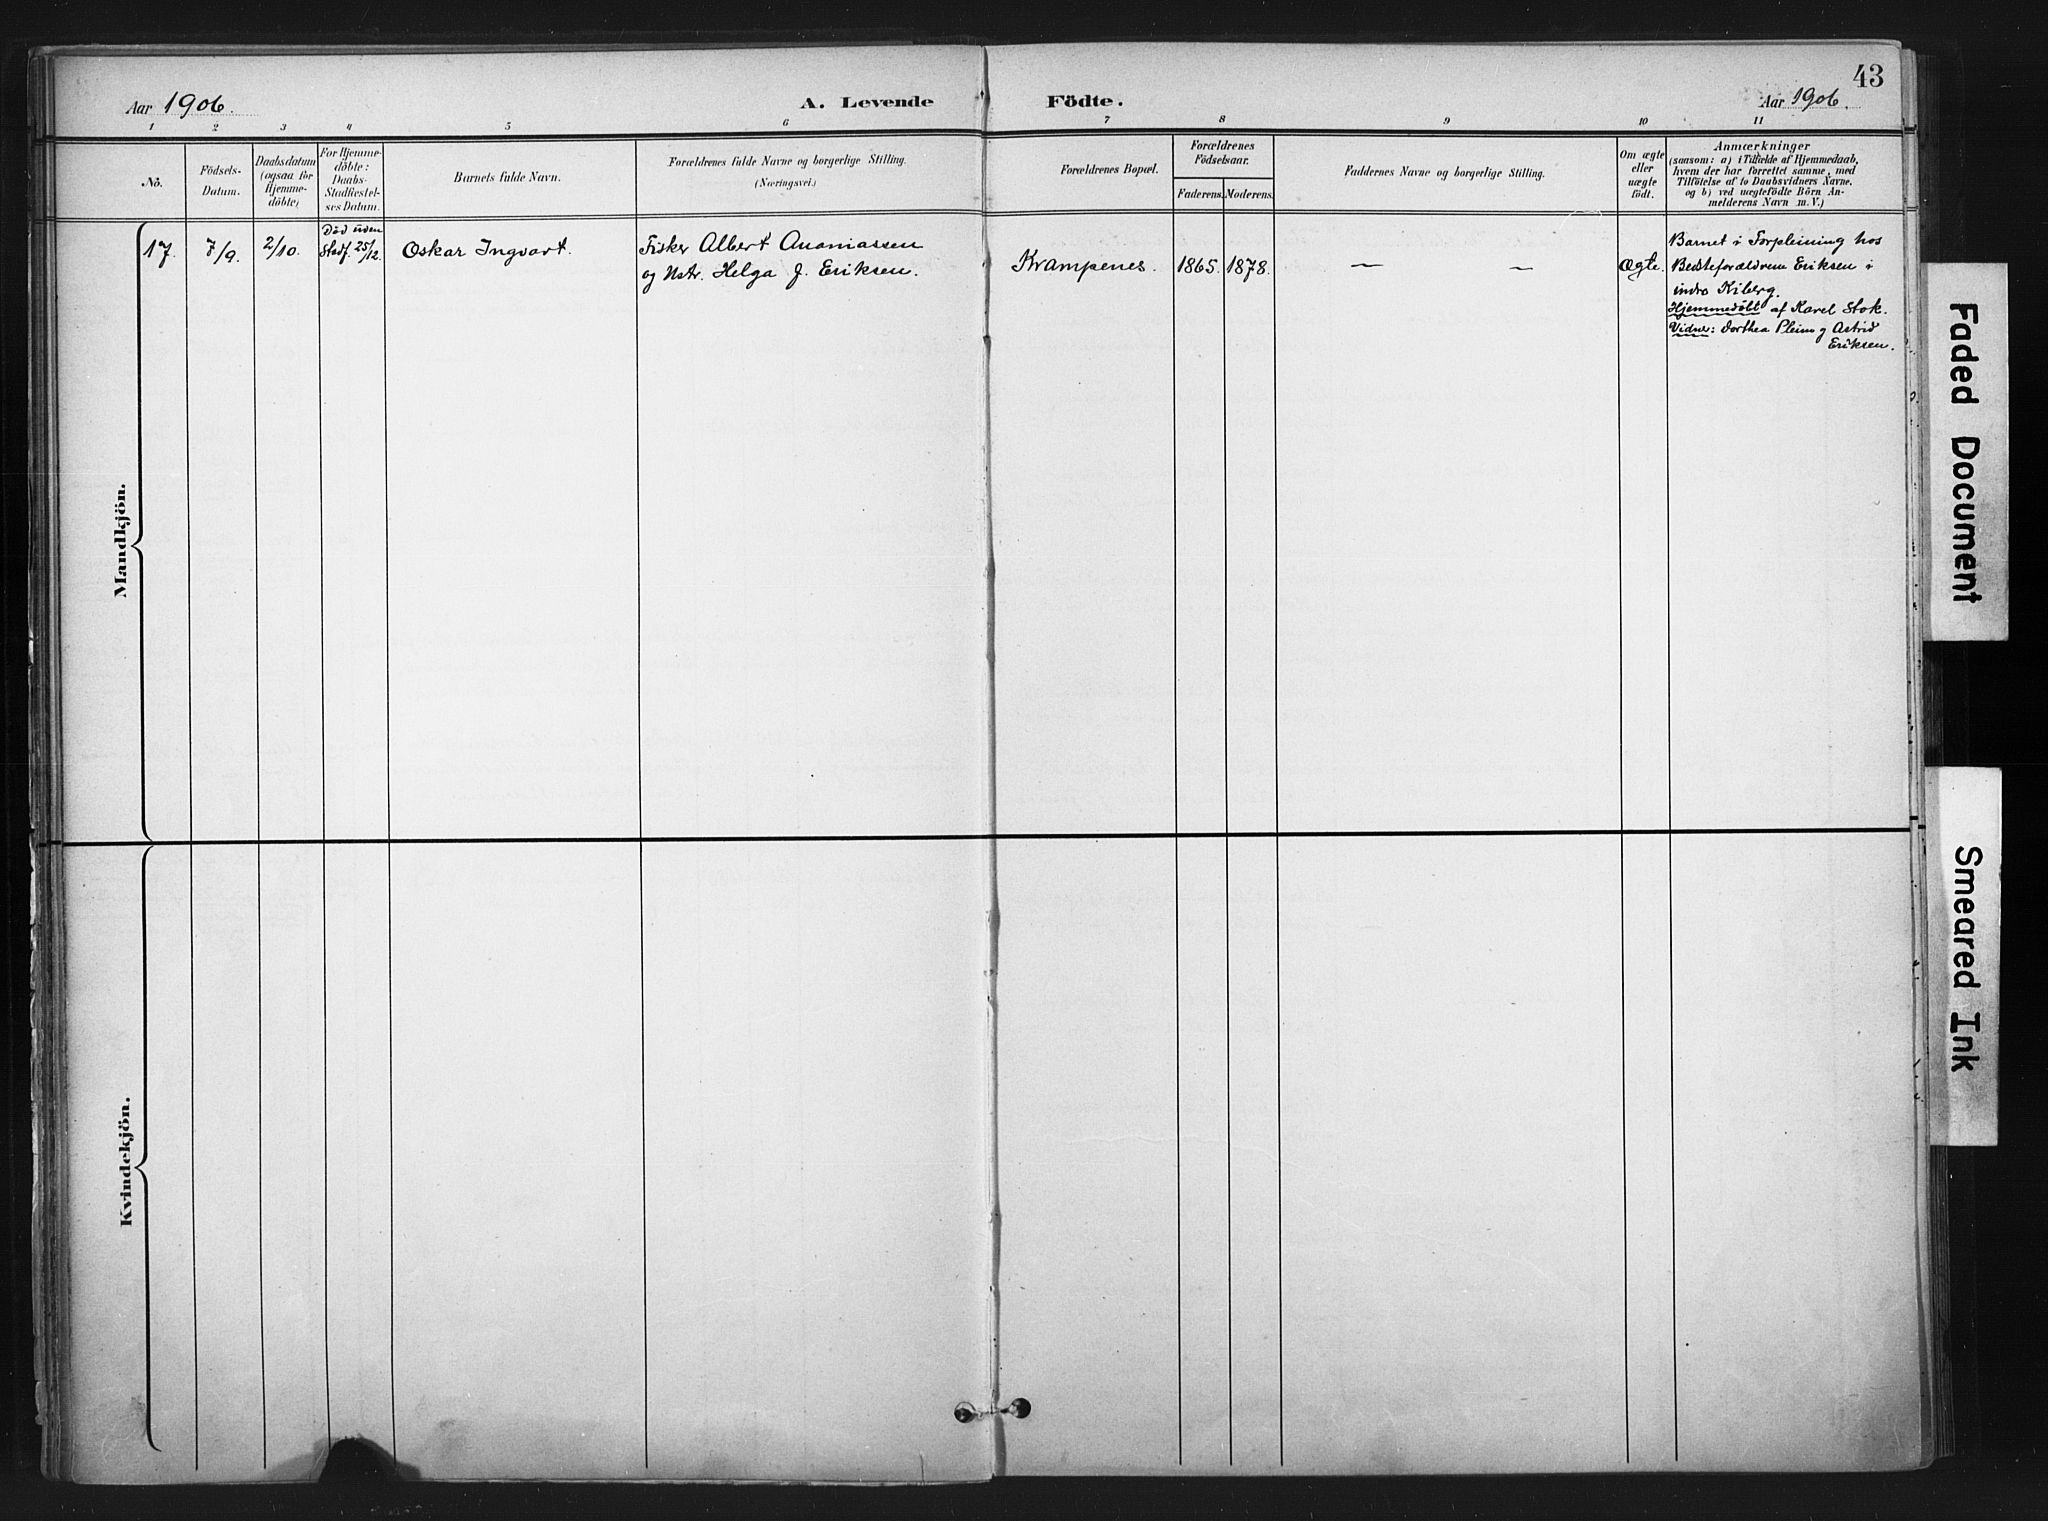 43
Aar 1906.
A. Levende Födte.
Aar 1906.
1 2 3 4 5 6 7 8 9 10 11
No.
Födsels-
Datum.
Daabsdatum
(ogsaa for
Hjemme-
döbte)
For Hjemme-
döbte:
Daabs-
Stadfæstel-
ses Datum.
Barnets fulde Navn.
Forældrenes fulde Navne og borgerlige Stilling.
(Næringsvei.)
Forældrenes Bopæl.
Forældrenes
Födselsaar.
Faderens. Moderens.
Faddernes Navne og borgerlige Stilling.
Om ægte
eller
uægte
födt.
Anmærkninger
(saasom: a) i Tilfælde af Hjemmedaab,
hvem der har forrettet samme, med
Tilföielse af to Daabsvidners Navne,
og b) ved uægtefödte Börn An-
melderens Navn m. V.)
Mandkjön.
17.
7/9.
2/10.
Död uden
Stadf. 25/12.
Oskar Ingvart.
Fisker Albert Ananiassen
og Hstr. Helga J. Eriksen.
Krampenes.
1865.
1878.
— —
Ægte.
Barnet i Forpleining hos
Bedsteforældrene Eriksen i
indre Kiberg.
Hjemmedöbt af Karel Stok.
Vidner: Dorthea Pleim og Astrid
Eriksen.
Kvindekjön.
Faded Document
Smeared Ink